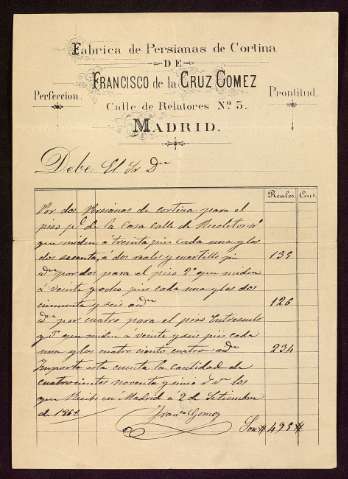 Fabrica de Persianas de Cortina
DE
FRANCISCO de la CRUZ GOMEZ
Perfeccion. Prontitud.
Calle de Relatores Nº 5.
MADRID.
Debe El Sr Dn
Reales Cent
Por dos Persianas de cortina para el
piso pl de la Casa calle de Recoletos nº
que miden a treinta pies cada una y las
dos sesenta, á dos reales y cuartillo pie 135
idm por dos para el piso 2º que miden
á veinte y ocho pies cada una y las dos
cincuenta y seis idm 126
idm por cuatro para el piso Entresuelo
que miden á veinte y seis pies cada
una y las cuatro ciento cuatro idm 234
Importa esta cuenta la cantidad de
cuatrocientos noventa y cinco rs vn los
que Recibi en Madrid a 2 de Setiembre
de 1864
Franco Gomez
Son 495